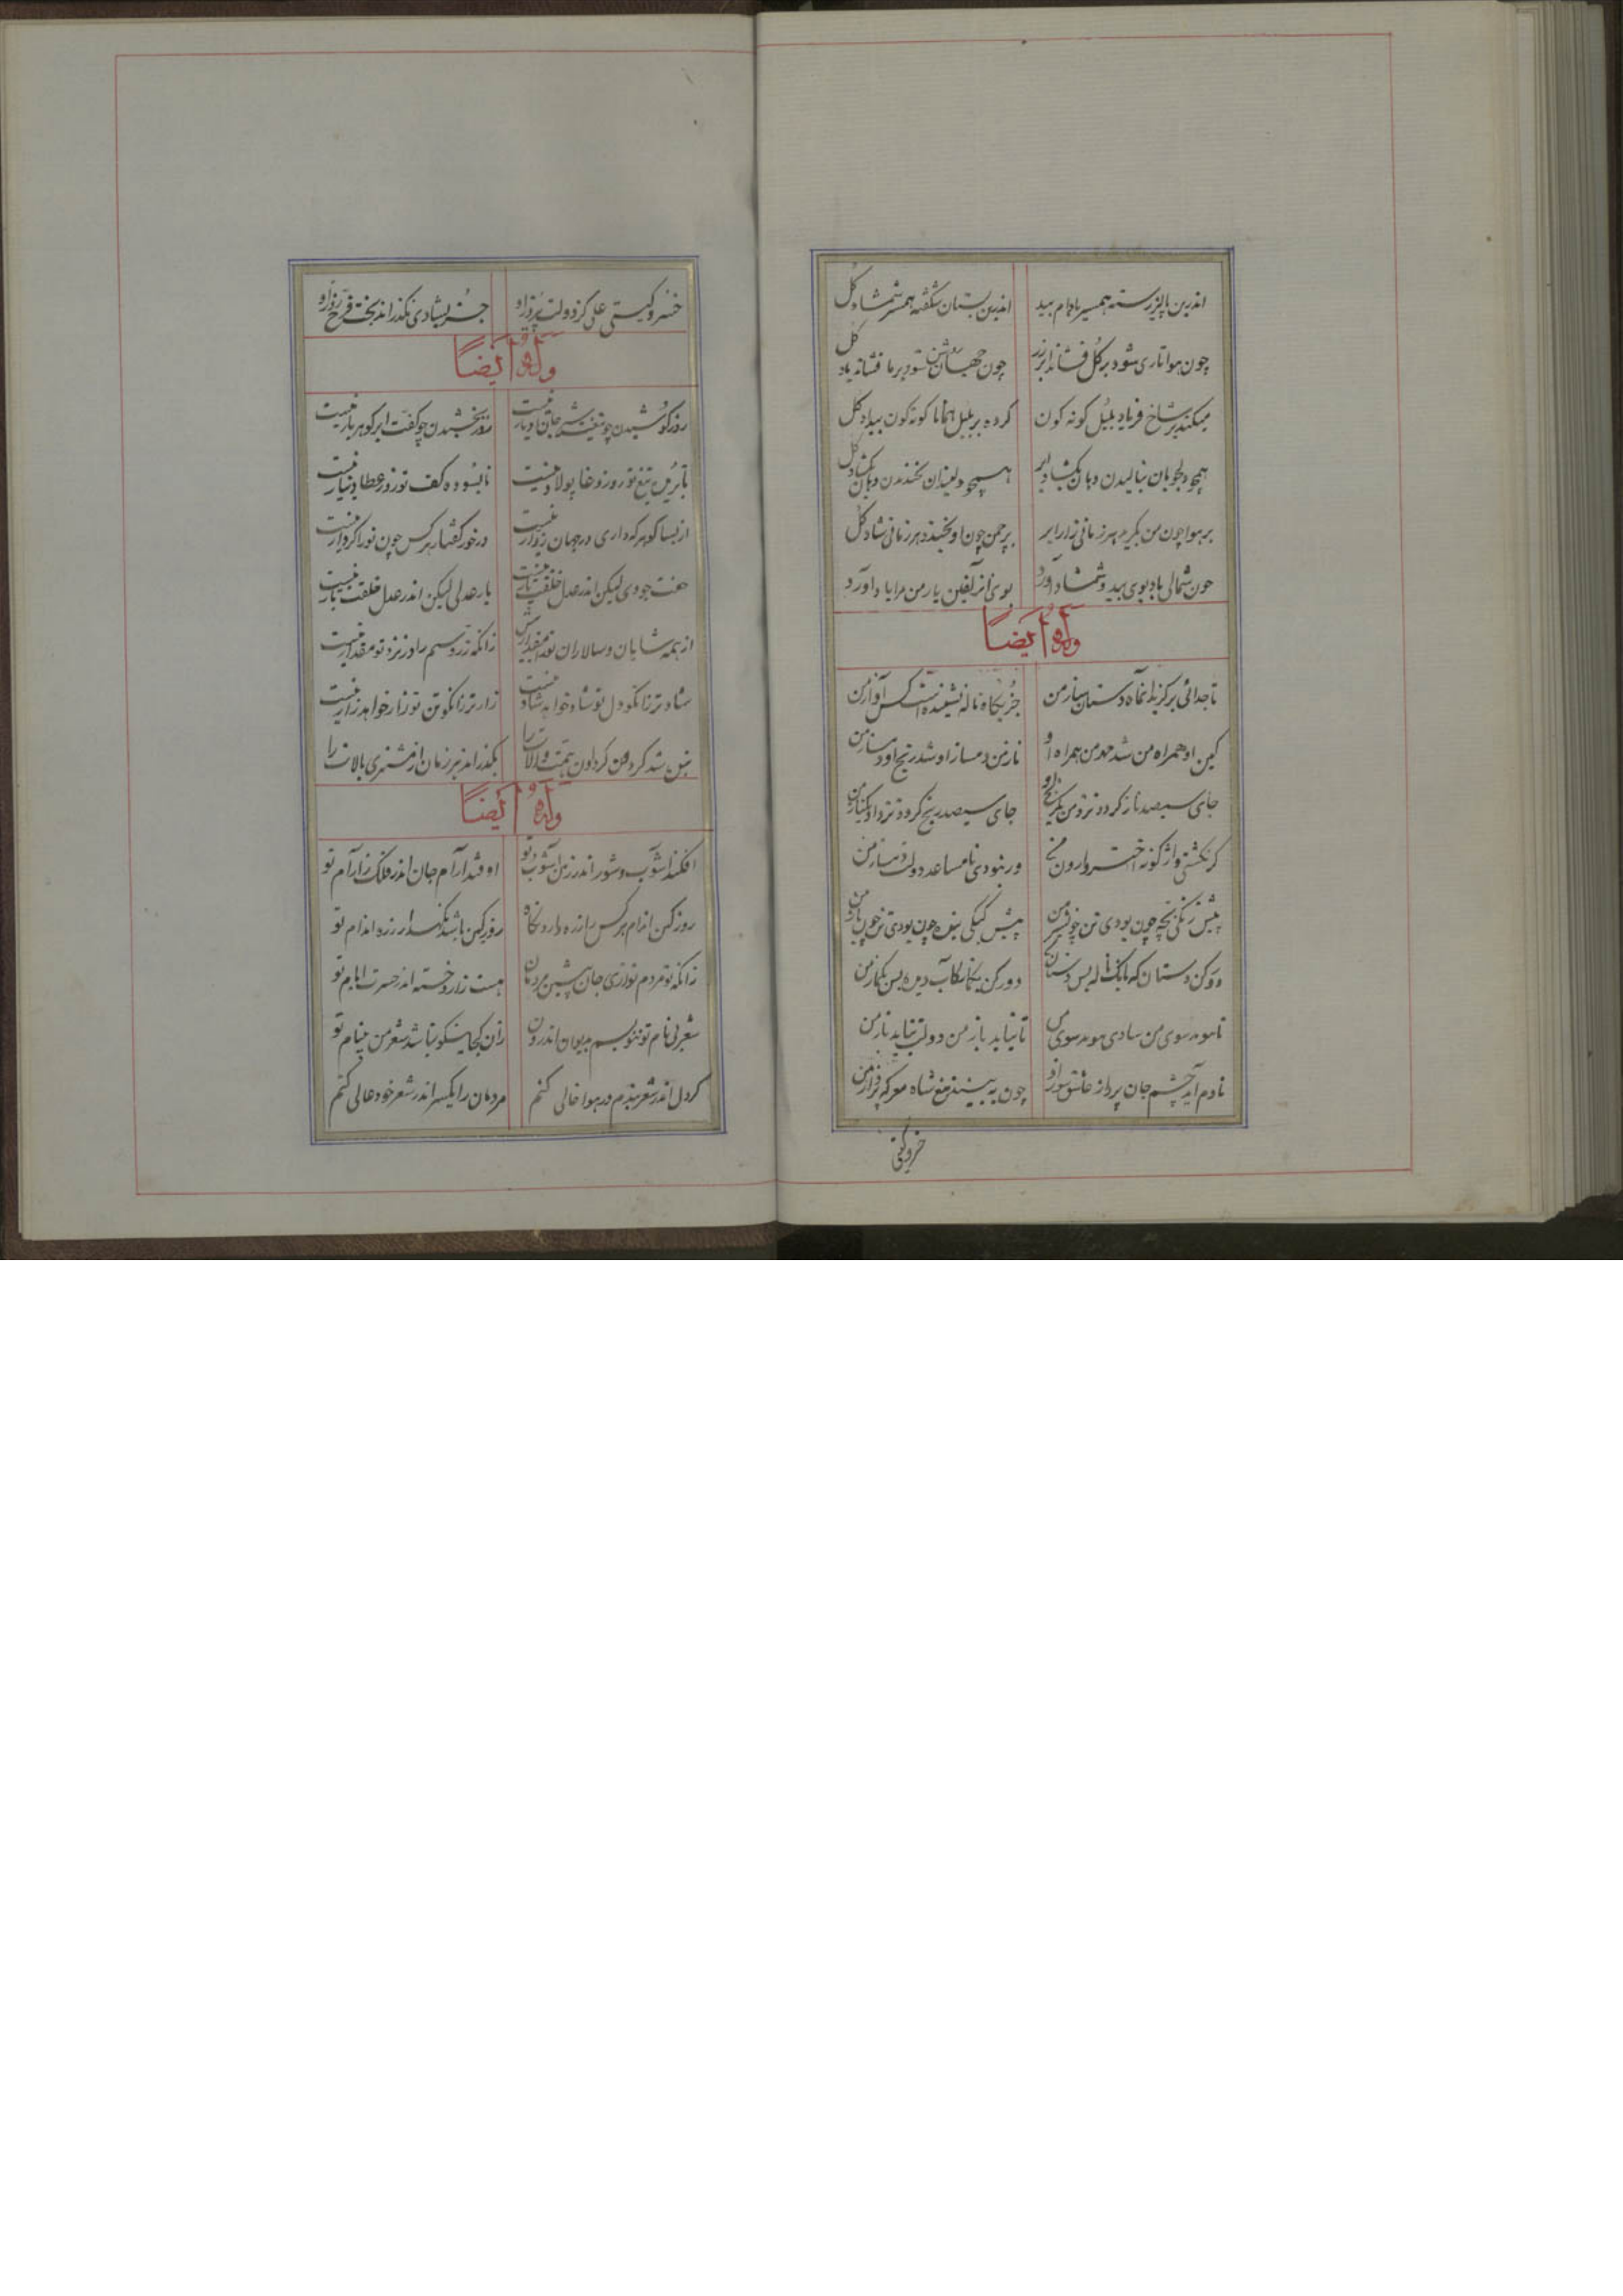 اندرین پالیز رسته همسر بادام بید اندرین بستان شکفته همسر شمشاد گل
چون هوا تاری شود بر گل فشاند ابر زر چون جهان روشن شود بر ما فشاند باد گل
میکند بر شاخ فریاد بلبل گونه گون کرده بر بلبل همانا گونه گون بیداد گل
همچو دلجویان بنالیدن دهان بگشاد ابر همچو دلبندان بخندیدن دهان بگشاد گل
بر هوا چون من بگرید هر زمانی زار ابر بر چمن چون او بخندد هر زمانی شاد گل
چون شمالی باد بوی بید و شمشاد آورد بوی از زلفین یار من مرا یاد آورد
وله ایضا
تا جدائی برگزید آنماه دستان ساز من جز بگاه ناله نشنیده است کس آواز من
کین او همراه من شد مهر من همراه او ناز من دمساز او شد رنج او دمساز من
جای سیصد ناز گردد نزد من یکرنج او جای سیصد رنج گردد نزد او یکناز من
گر نگشتی واژگونه اختر وارون من ور نبودی نامساعد دولت دمساز من
پیش زنگی بچه چون بودی تن چون من پیش کبکی چون بودی تن چون باز من
دور کن دستان که بانگ ناله بس دستان من دور کن کاب دیده بس من
تا نبوید سوی من شادی نبوید سوی من تا نیاید باز من دولت نیاید باز من
یادم آید چشم جان پرداز عاشق سوز او چون به بینند تیغ شاه معرکه پرداز من
خسرو گیتی
خسرو گیتی علی کز دولت پیروز او جز بشادی نگذراند بخت فرخ روز او
وله ایضا
روز کوشیدن چو تیغت شیر جان اوبار نیست روز بخشیدن چو کفت ابر گوهر بار نیست
تا بریدن تیغ تو روز وغا پولاد نیست نابسوده کف تو روز عطا دینار نیست
از بسا گوهر که داری در جهان زوار نیست در خور گفتار هر کس چون تو را کردار نیست
جفت جودی لیکن اندر عدل خلقت نیست یار عدلی لیکن اندر عدل خلقت یار نیست
از همه شاهان و سالاران تو را مقدار بیش زانکه زر و سیم را در نزد تو مقدار نیست
شاد تر زانکو دل تو شاد خواهد شاد نیست زار تر زانکو تن تو زار خواهد زار نیست
بگذراند هر زمان از مشتری بالات را
وله ایضا
افکند آشوب و شور اندر زمین آشوب تو او فتد آرام جان اندر فلک ز آرام تو
روز کین اندام هر کس را زره دارد نگاه روز کین باشد نگهدار زره اندام تو
زانکه تو مردم نوازی جان پیشین مردمان هست زار و خسته اندر حسرت ایام تو
شعر بی نام تو ننویسم بدیوان اندرون زان کجا نیکو نباشد شعر من بی نام تو
گر دل اندر شعر بندم در هوا خالی کنم مردمان را یکسر اندر شعر خود عالی کنم